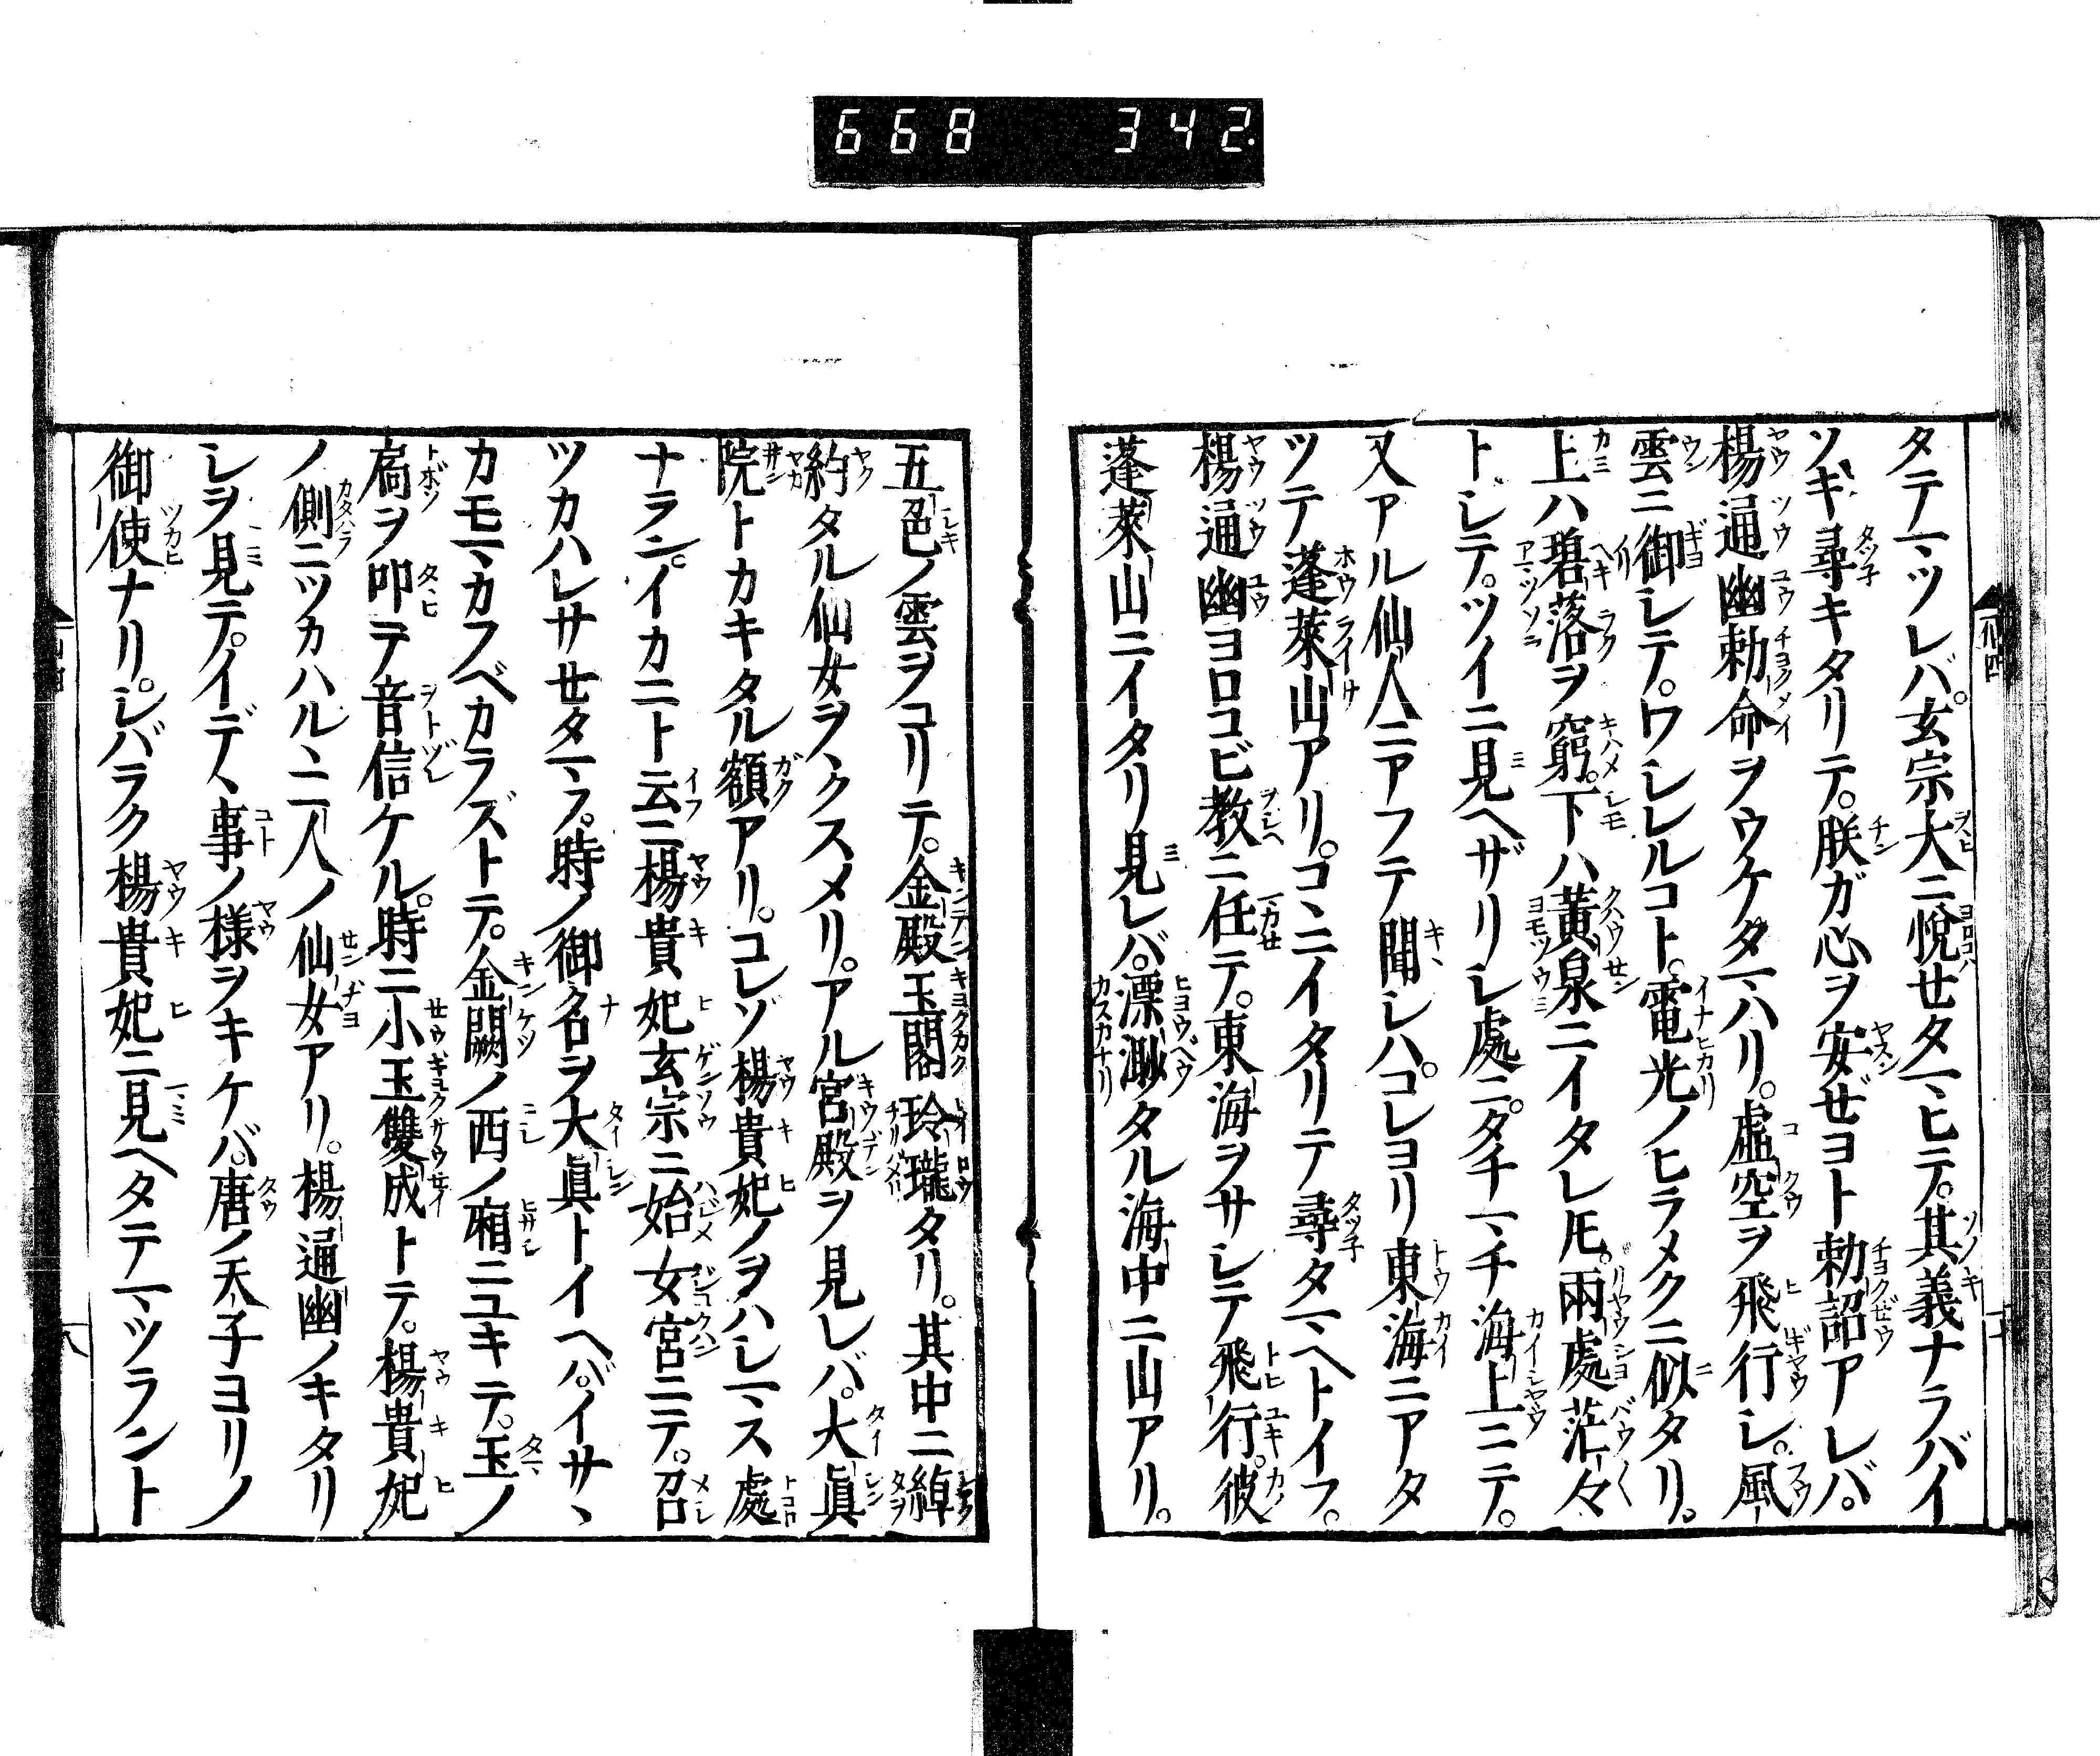 668 342.
タテマツレバ。玄宗大ニ悅セタマヒテ。其義ナラバイ
ソギ尋キタリテ。朕ガ心ヲ安ゼヨト勅詔アレバ。
楊通幽勅命ヲウケタマハリ。虛空ヲ飛行シ。風
雲ニ御シテ。ワシレルコト。電光ノヒラメクニ似タリ。
上ハ碧落ヲ窮。下ハ黃泉ニイタレ𪜈。兩處茫々
トシテ。ツイニ見ヘザリシ處ニ。タチマチ海上ニテ。
又アル仙人ニアフテ聞シハ。コレヨリ東海ニアタ
ツテ蓬萊山アリ。コヽニイタリテ尋タマヘトイフ。
楊通幽ヨロコビ教ニ任テ。東海ヲサシテ飛行。彼
蓬萊山ニイタリ見レバ。漂渺タル海中ニ山アリ。
五色ノ雲ヲコリテ。金殿玉閣玲瓏タリ。其中ニ綽
約タル仙女ヲヽクスメリ。アル宮殿ヲ見レバ。大眞
院トカキタル額アリ。コレゾ楊貴妃ノヲハシマス處
ナラン。イカニト云ニ楊貴妃玄宗ニ始女宮ニテ。召
ツカハレサセタマフ。時ノ御名ヲ大眞トイヘバ。イサヽ
カモマカフベカラズトテ。金闕ノ西ノ廂ニユキテ。玉ノ
扃ヲ叩テ音信ケル。時ニ小玉雙成トテ。楊貴妃
ノ側ニツカハルヽ二人ノ仙女アリ。楊通幽ノキタリ
シヲ見テ。イデヽ事ノ様ヲキケバ。唐ノ天子ヨリノ
御使ナリ。シバラク楊貴妃ニ見ヘタテマツラント